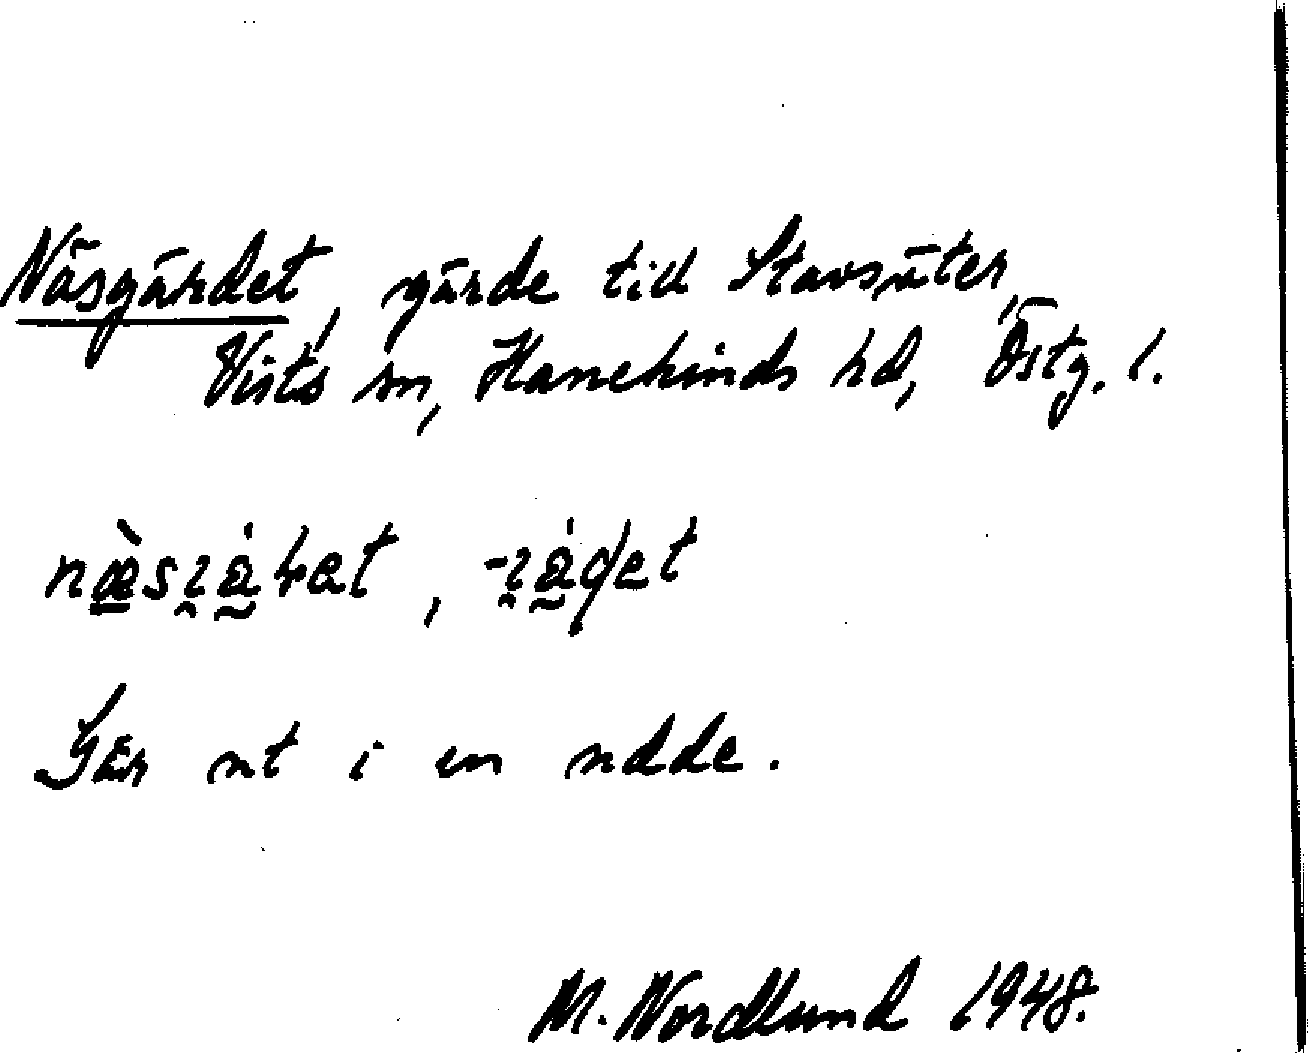 Näsgärdet, gärde till Stavsäter,
Vists sn, Hanekinds hd, Östg. l.
Går ut i en udde.
M. Nordlund 1948.